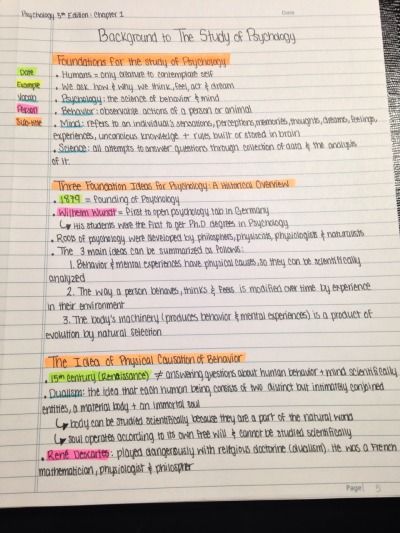 Psychology 5th Edition: Chapter 1
Date
Background to The Study of Psychology
Foundations for the study of Psychology
Date
• Humans = only creature to contemplate self
Example
• We ask how & why we think, feel, act & dream
Vocab
• Psychology: the science of behavior & mind
Person
• Behavior: observable actions of a person or animal
Sub-title
• Mind: refers to an individual's sensations, perceptions, memories, thoughts, dreams, feelings,
experiences, unconcious knowledge + rules built or stored in brain
• Science: all attempts to answer questions through collection of data & the analysis
of it.
Three Foundation Ideas for Psychology: A Historical Overview
• 1879 = founding of Psychology
• Wilhelm Wundt = first to open psychology lab in Germany
↳ His students were the first to get Ph.D degrees in Psychology
• Roots of psychology were developed by philosphers, physicists, physiologists & naturalists
• The 3 main ideas can be summarized as follows:
1. Behavior & mental experiences have physical causes, so they can be scientifically
analyzed
2. The way a person behaves, thinks & feels is modified over time by experience
in their environment
3. The body's machinery (produces behavior & mental experiences) is a product of
evolution by natural selection
The Idea of Physical Causation of Behavior
• 15th century (Renaissance) ≠ answering questions about human behavior + mind scientifically
• Dualism: the idea that each human being consists of two distinct but intimately conjoined
entities, a material body + an immortal soul
↳ body can be studied scientifically because they are a part of the natural world
↳ soul operates according to its own free will & cannot be studied scientifically
• René Descartes: played dangerously with religious doctorine (dualism). He was a French
mathematician, physiologist & philospher
Page 5